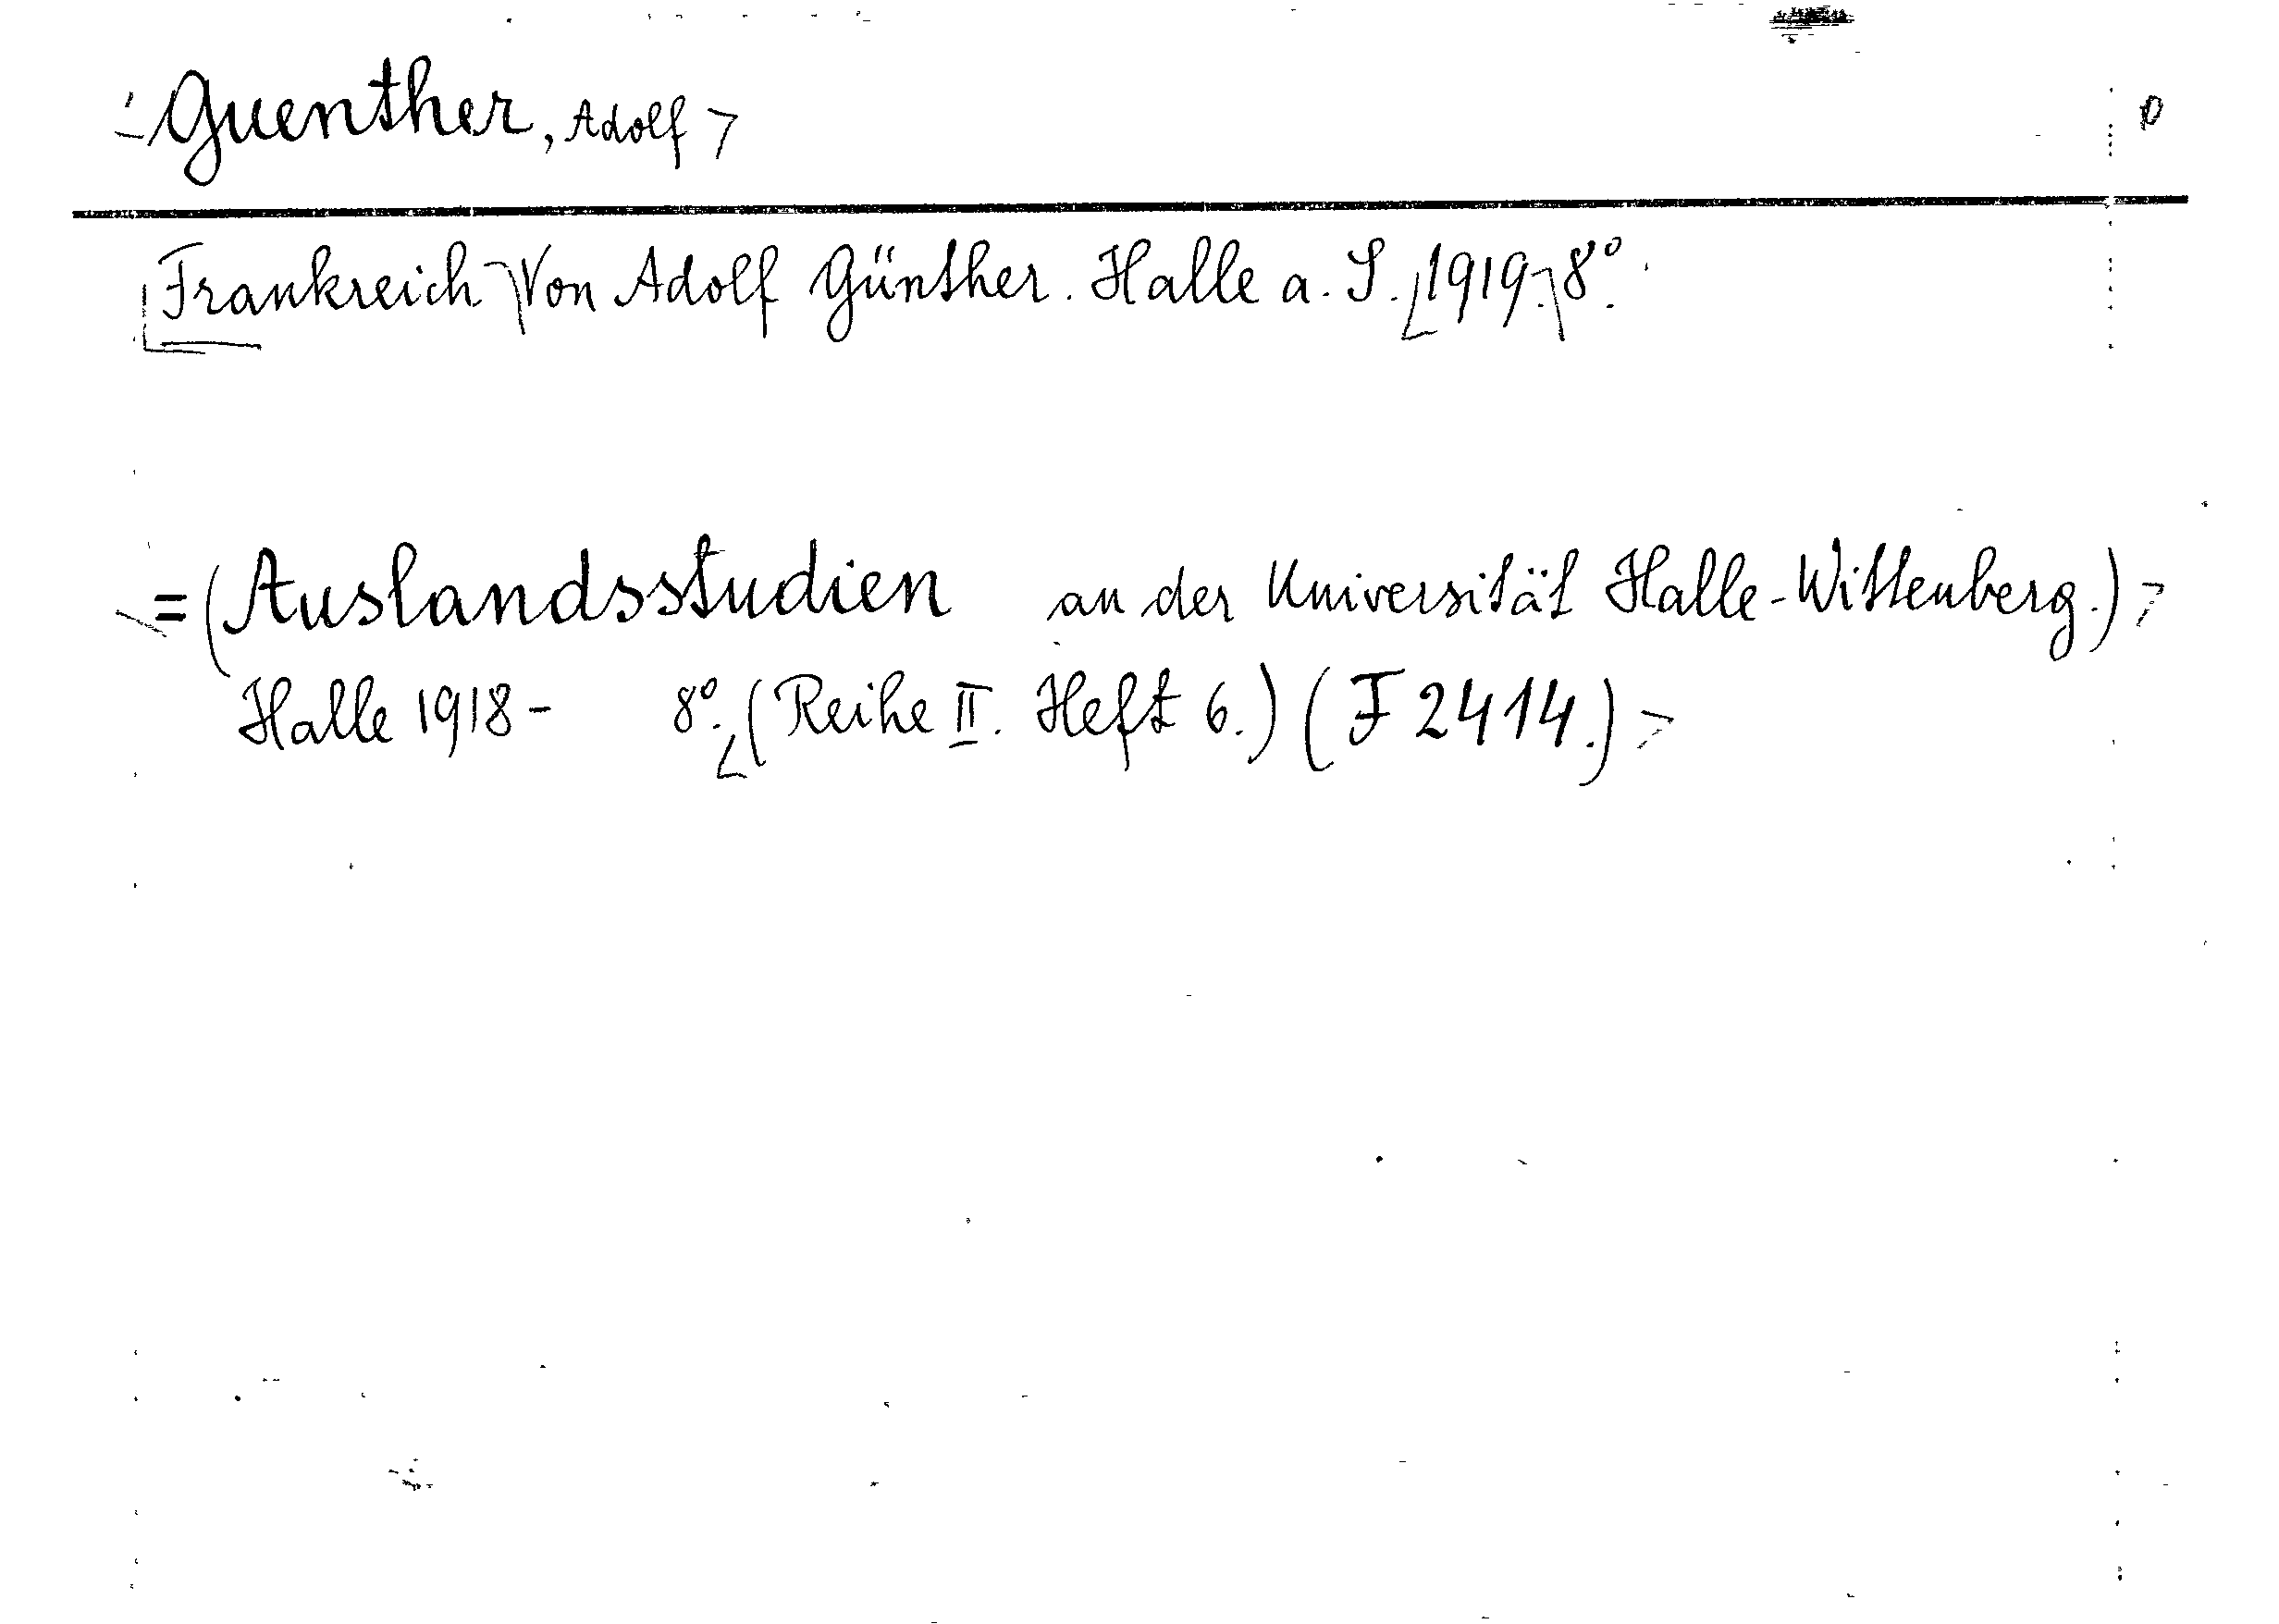 Guenther, Adolf
Frankreich Von Adolf Günther. Halle a. S. 1919. 8°.
=(Auslandsstudien an der Universität Halle-Wittenberg.)
Halle 1918- 8°. (Reihe II. Heft 6.) (F 2414.)